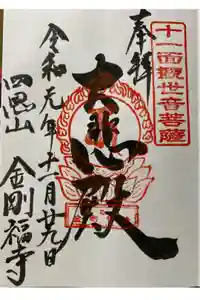 十一面觀世音菩薩
奉拝
大悲殿
令和元年十一月廿九日
四恩山
金剛福寺